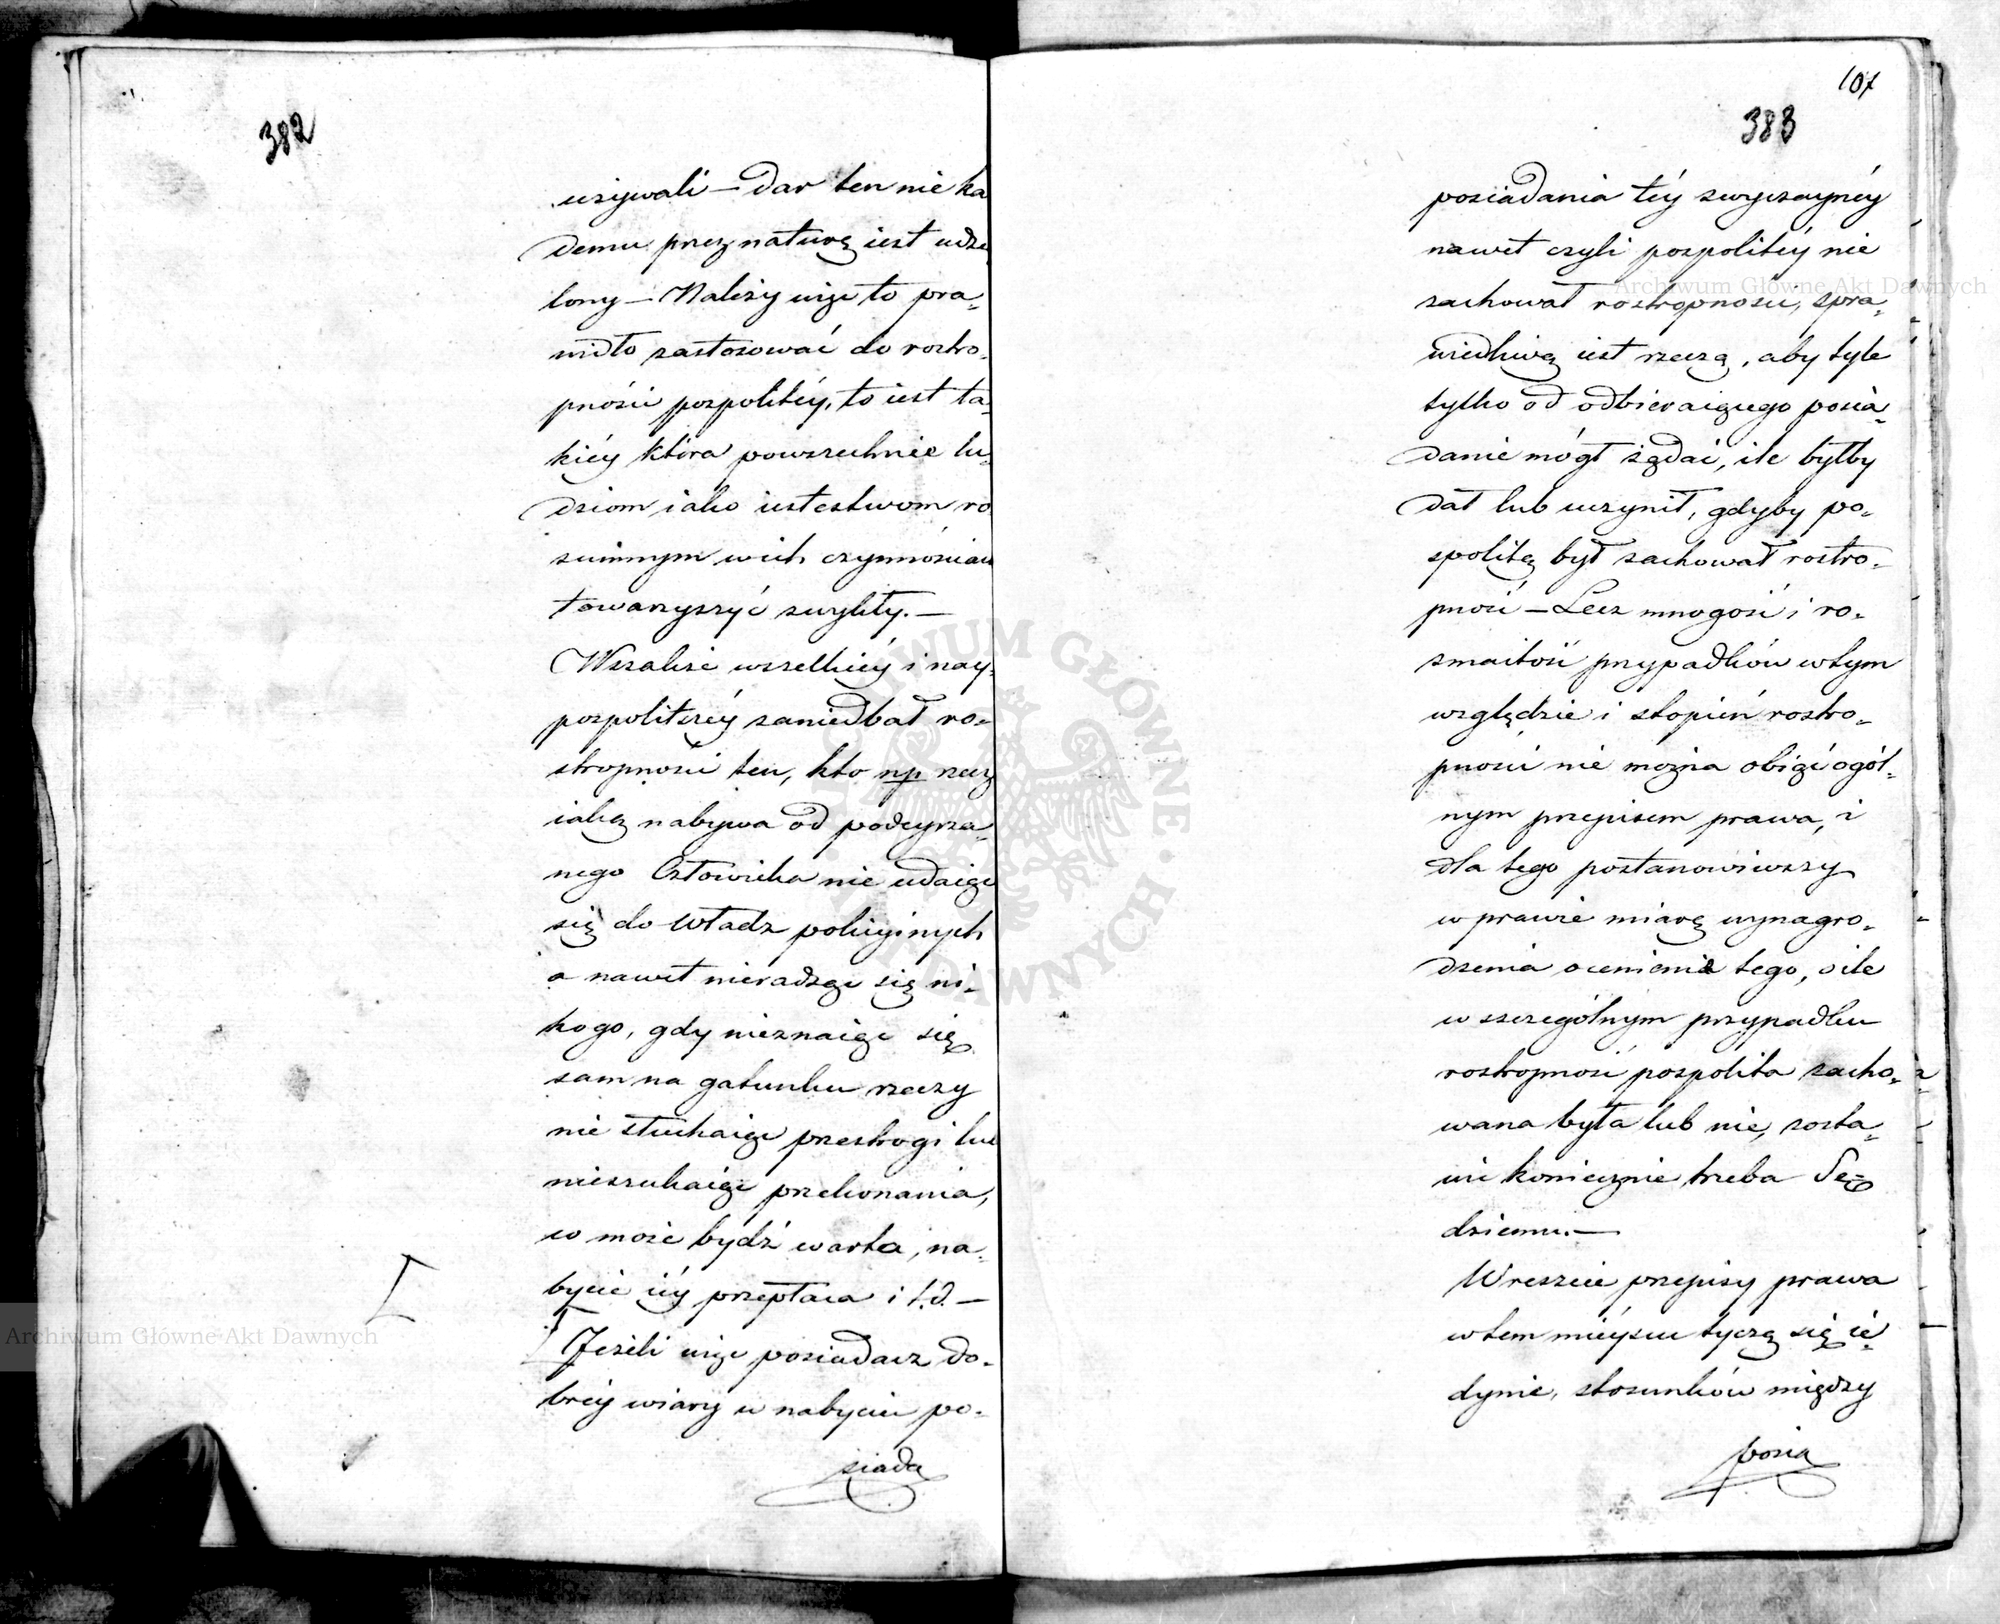 382
używali — Dar ten nie ka
demu przez naturę iest udzie
lony — Należy więc to pra„
widło zastosować do rostro„
pności pospolitéy, to iest ta„
kiéy która powszechnie lu„
dziom iako iestestwom ro
zumnym w ich czynnościach
towarzyszyć zwykły. —
Wszakże wszelkiéy i nay„
pospolitszéy zaniedbał ro„
stropności ten, kto np rzecz
iaką nabywa od podeyrza„
nego Człowieka nie udaiąc
się do Władz policyinych
a nawet nieradząc się ni„
kogo, gdy nieznaiąc się
sam na gatunku rzeczy
nie słuchaiąc przestrogi lub
nieszukaiąc przekonania,
co może bydź warta, na„
bycie iéy przepłaca i t.d. —
Jeżeli więc posiadacz do„
bréy wiary w nabyciu po„
siada
107
383
posiadania téy zwyczaynéy
nawet czyli pospolitéy nie
zachował rostropności, spra„
wiedliwą iest rzeczą, aby tyle
tylko od odbieraiącego posia„
danie mógł żądać, ile byłby
dał lub uczynił, gdyby po„
spolitą był zachował rostro„
pność — Lecz mnogość i ro„
zmaitość przypadków w tym
względzie i stopień rostro„
pności nie można obiąć ogól„
nym przepisem prawa, i
dla tego postanowiwszy
w prawie miarę wynagro„
dzenia ocenienie tego, o ile
w szczególnym przypadku
rostropność pospolita zacho„
wana była lub nie, zosta„
wić koniecznie trzeba Sę„
dziemu. —
Wreszcie przepisy prawa
w tem mieyscu tyczą się ie„
dynie, stosunków między
posia